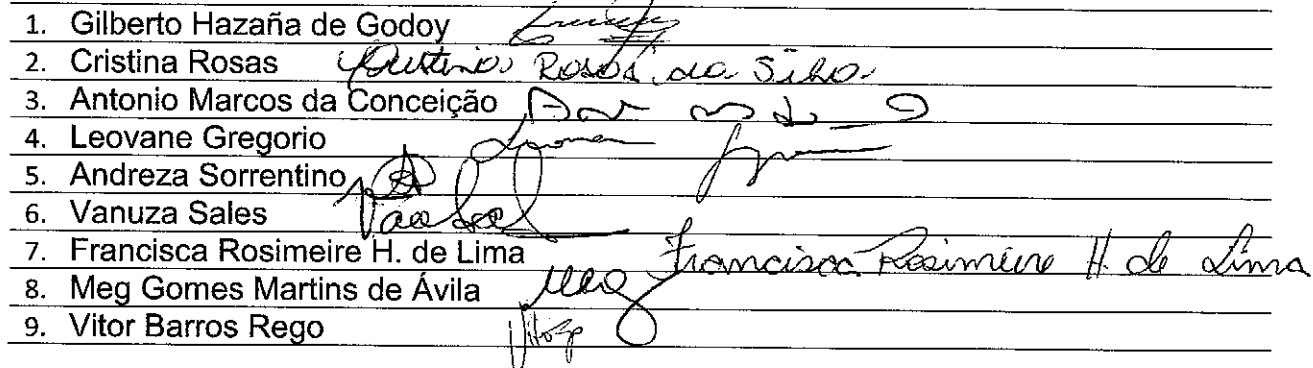 1. Gilberto Hazaña de Godoy
2. Cristina Rosas Cristina Rosas da Silva
3. Antonio Marcos da Conceição
4. Leovane Gregorio
5. Andreza Sorrentino
6. Vanuza Sales
7. Francisca Rosimeire H. de Lima Francisca Rosimeire H. de Lima
8. Meg Gomes Martins de Ávila Meg
9. Vitor Barros Rego Vitor